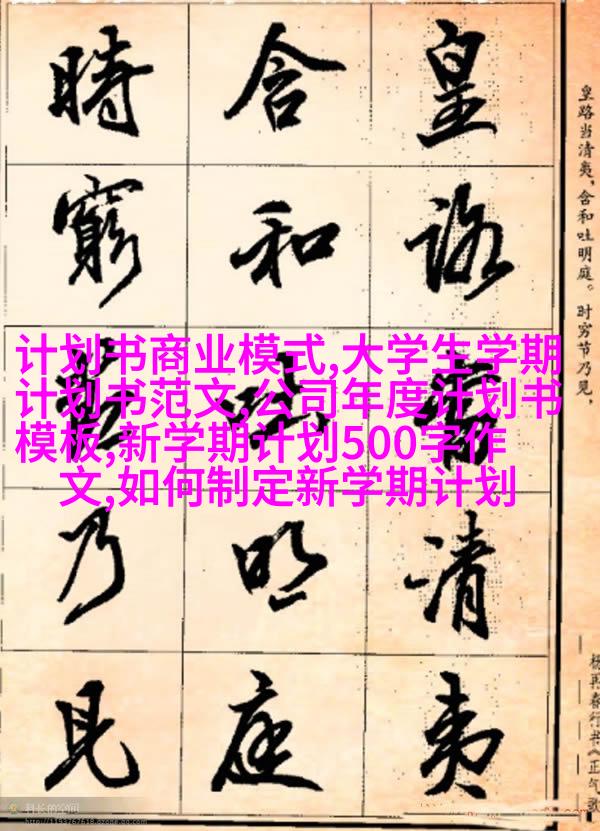 皇路當清夷
含和吐明庭
時窮節乃見
皇路当清夷，含和吐明庭。时穷节乃见，
杨再春行书《正气歌
计划书商业模式,大学生学期
计划书范文,公司年度计划书
模板,新学期计划500字作
文,如何制定新学期计划
科长的空间